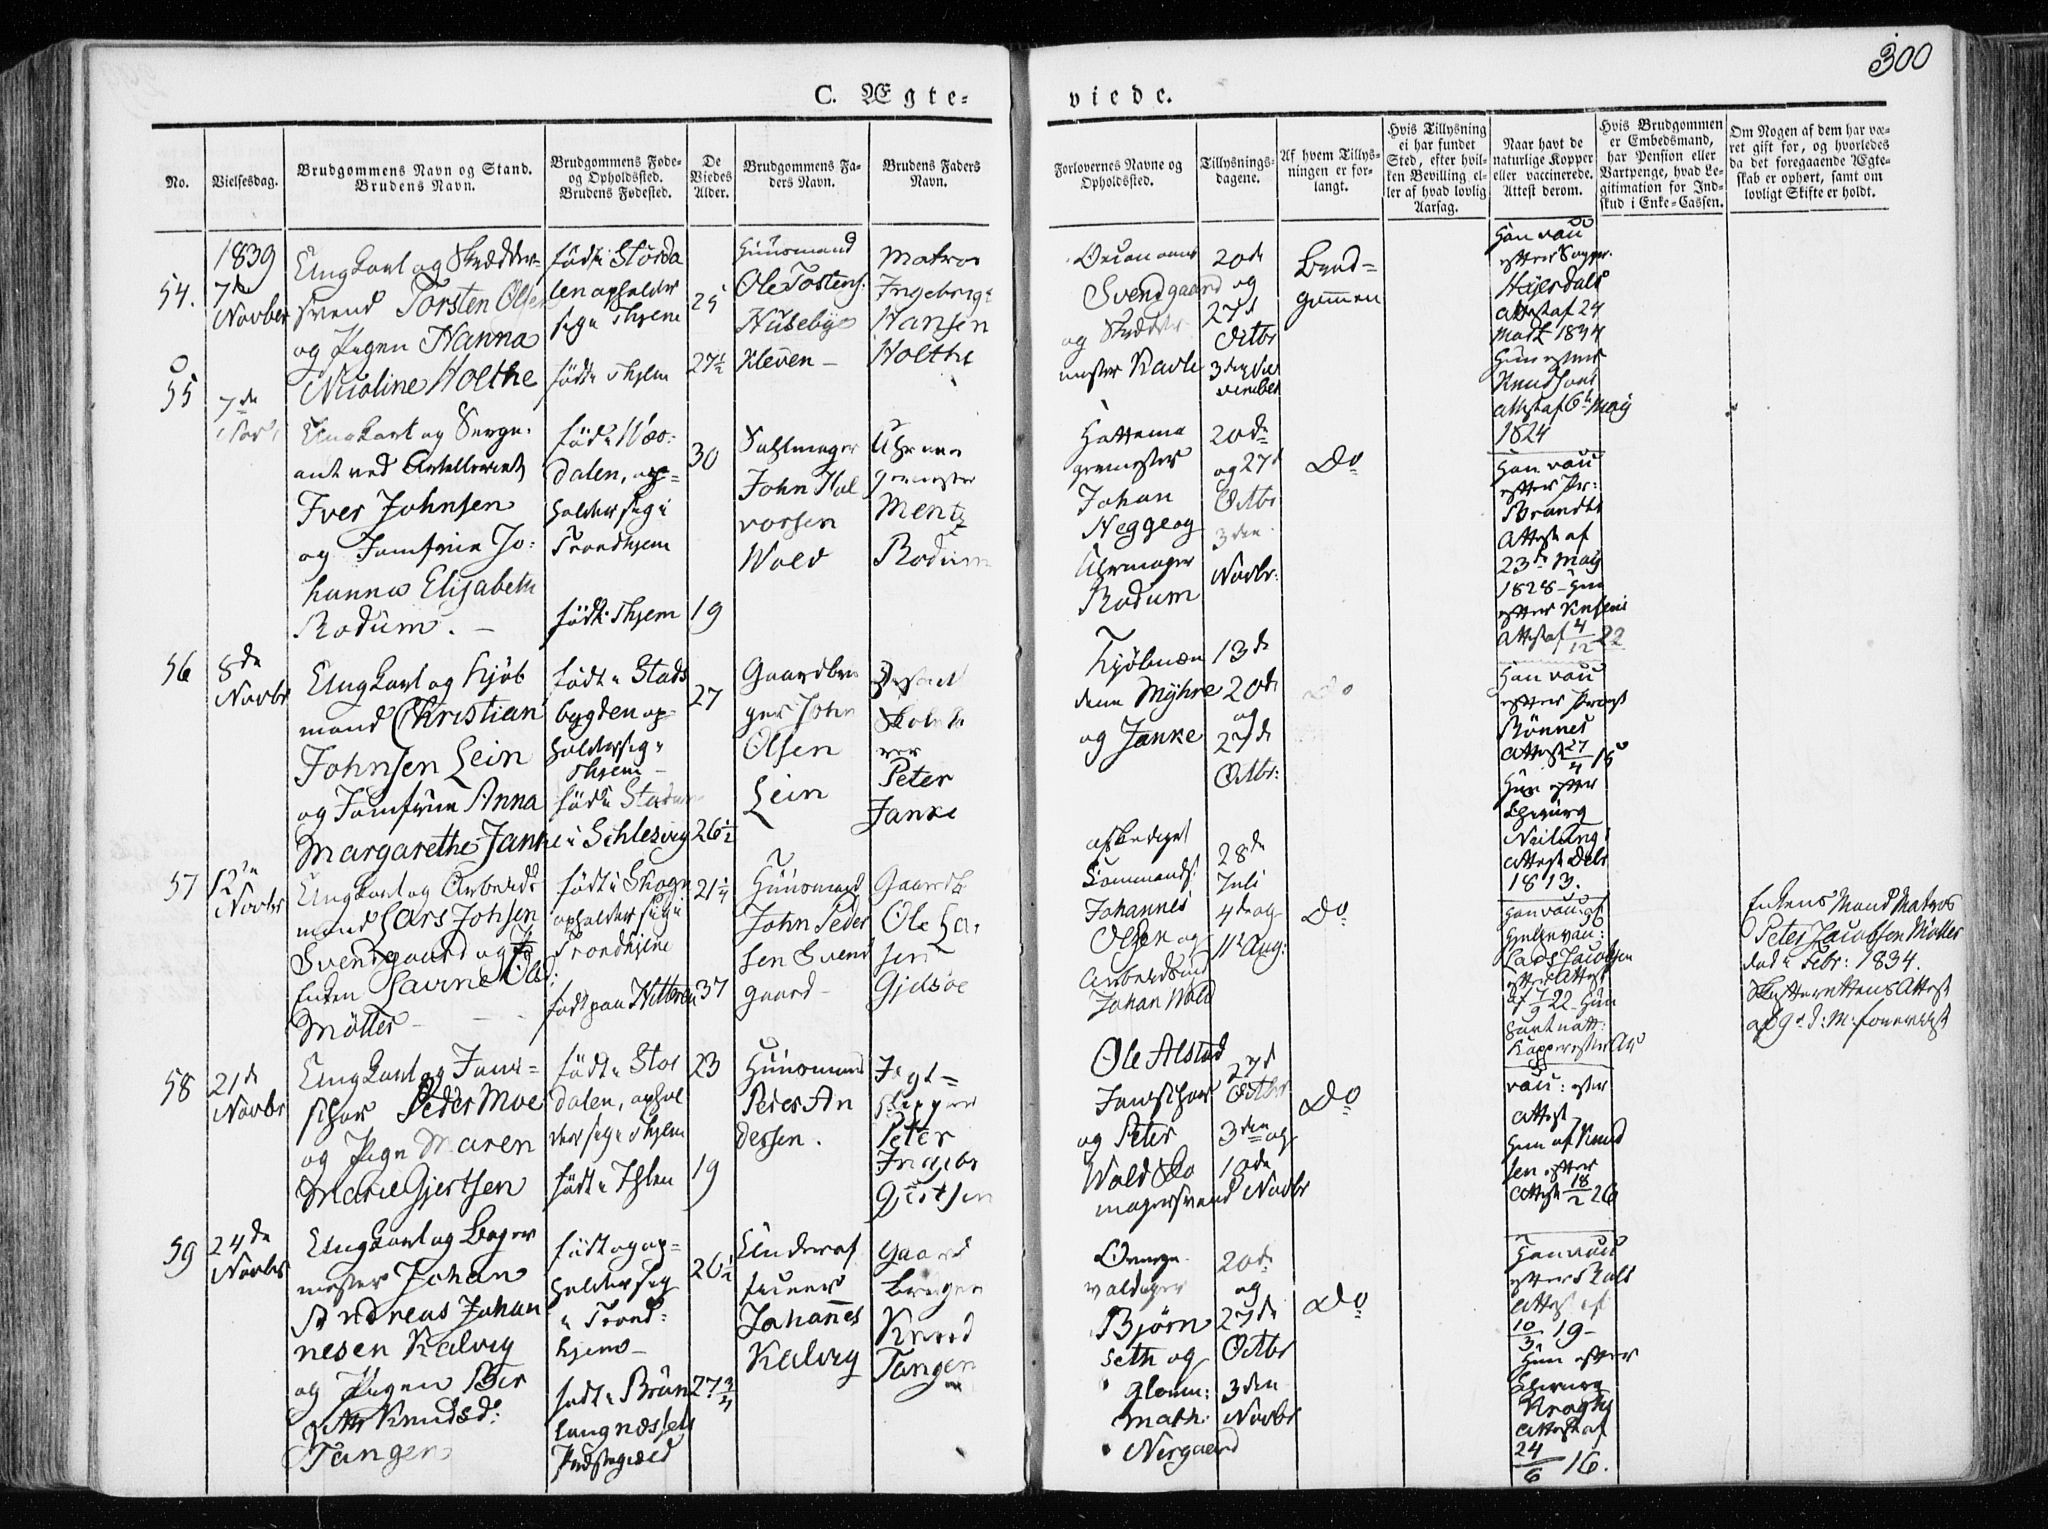 300
C. Ægte-
viede.
No.
Vielsesdag.
Brudgommens Navn og Stand.
Brudens Navn.
Brudgommens Føde-
og Opholdssted.
Brudens Fødested.
De
Viedes
Alder.
Brudgommens Fa-
ders Navn.
Brudens Faders
Navn.
Forlovernes Navne og
Opholdssted.
Tillysnings-
dagene.
Af hvem Tillys-
ningen er for-
langt.
Hvis Tillysning
ei har fundet
Sted, efter hvil-
ken Bevilling el-
ler af hvad lovlig
Aarsag.
Naar havt de
naturlige Kopper
eller vaccinerede.
Attest derom.
Hvis Brudgommen
er Embedsmand,
har Pension eller
Vartpenge, hvad Le-
gitimation for Ind-
skud i Enke-Cassen.
Om Nogen af dem har væ-
ret gift før, og hvorledes
da det foregaaende Ægte-
skab er ophørt, samt om
lovligt Skifte er holdt.
54.
1839
7de
Novber
Ungkarl og Skrædder-
svend Torsten Olsen
og Pigen Hanna
Nicoline Holthe
født i Storda
len opholder
sig i Thjem
født i Thjem
25
27½
Huusmand
Ole Tostens.
Huseby
Kleven
Matros
Ingebrigt
Hansen
Holthe
Svendgaard
og Skrædder-
mester Kavli
20de
og
27d
Octbr
3den No
vember
Brud-
gommen
Han vacc
efter
Hejerdals
Attest af 24
Martz 1834
Hun efter
Knudsons
Attest af 6te May
1824
55
7de
Nov.
Ungkarl og Serge-
ant ved Artelleriet
Iver Johnsen
og Jomfrue Jo-
hanna Elisabeth
Rodum.
født i Wær-
dalen, op-
holder sig i
Trondhjem
født i Thjem
30
19
Sadelmager
John Hal
vorsen
Wold
Uhrma
germester
Mentz
Rodum
Hattema
germester
Johan
Hegge og
Uhrmager
Rodum
20de
og 27d
Octbr
3den
Novbr:
Do
Han vacc
efter Pr:
Brandts
Attest af
23de May
1828 - Hun
efter
Attest af 4/12 22
56
8de
Novbr
Ungkarl og Kjøb
mand Christian
Johnsen Lein
og Jomfrue Anna
Margarethe Janke
født i Stads
bygden op-
holder sig i
Thjem
født i
i Schlesvig
27
26½
Gaardbru
ger John
Olsen
Lein
Skolelæ
rer
Peter
Janke
Kjøbmæn
dene Myhre
og Janke
13de
20de
og
27de
Octbr:
Do
Han vacc
efter Provst
Rönnes
Attest 27/4 15
Hun efter
Chirurg
Attest Debr
1813.
57
12te
Novbr
Ungkarl og Arbeids
mand Lars Johsen
Svendgaard og
Enken Lavine Ols
Møller
født i Skogn
opholder sig i
Trondhjem
født paa Hitteren
21¼
37
Huusmand
John Peder
sen Svend
gaard
Gaardb
Ole La
sen
Gjelsøe
afskediget
Commands.
Johannes
Olsen og
Arbeidsmd
Johan Wold
28de
Juli
4de og
11te Aug:
Do
Han vacc: af
Lars Jacobsen
efter Attest
af 7/9 22 Hun
havt natt:
Kopper efter Ar
Enkens Mand Matros
Peter Jacobsen Møller
død i Febr: 1834.
Skifterettens Attest
af 9d d: M: foreviist
58
21de
Novbr
Ungkarl og
Peder Moe
og Pige Maren
Marie Gjertsen
født i Stor
dalen, ophol
der sig i Thjem
født i Ihlen
23
19
Huusmand
Peder An
dersen.
Jagt-
skipper
Peter
Ingebr
Gjertsen
Ole Alstad
og Peter
Wold Sko
magersvend
27d
Octbr
3den og
10de
Novbr
Do
vacc: efter
Attest
Hun af Knud
sen efter
Attest 18/2 26
59
24de
Novbr
Ungkarl og Bager
mester Johan
Andreas Johan
nesen Kalvig
og Pigen Ber
gitte Knudsd:
Tangen
født og op-
holder sig
i Trond-
hjem
født i Brun
laugnæssets
Præstegield
26½
27¾
Underof
ficeer
Johannes
Kalvig
Gaard
bruger
Knud
Tangen
Bjørn
seth og
Math:
Nergaard
20de
og
27de
Octbr
3den
Novbr
Do
Han vacc
efter
Attest af
10/3 19
Hun efter
Chirurg
Kroghs
Attest af
24/6 16.